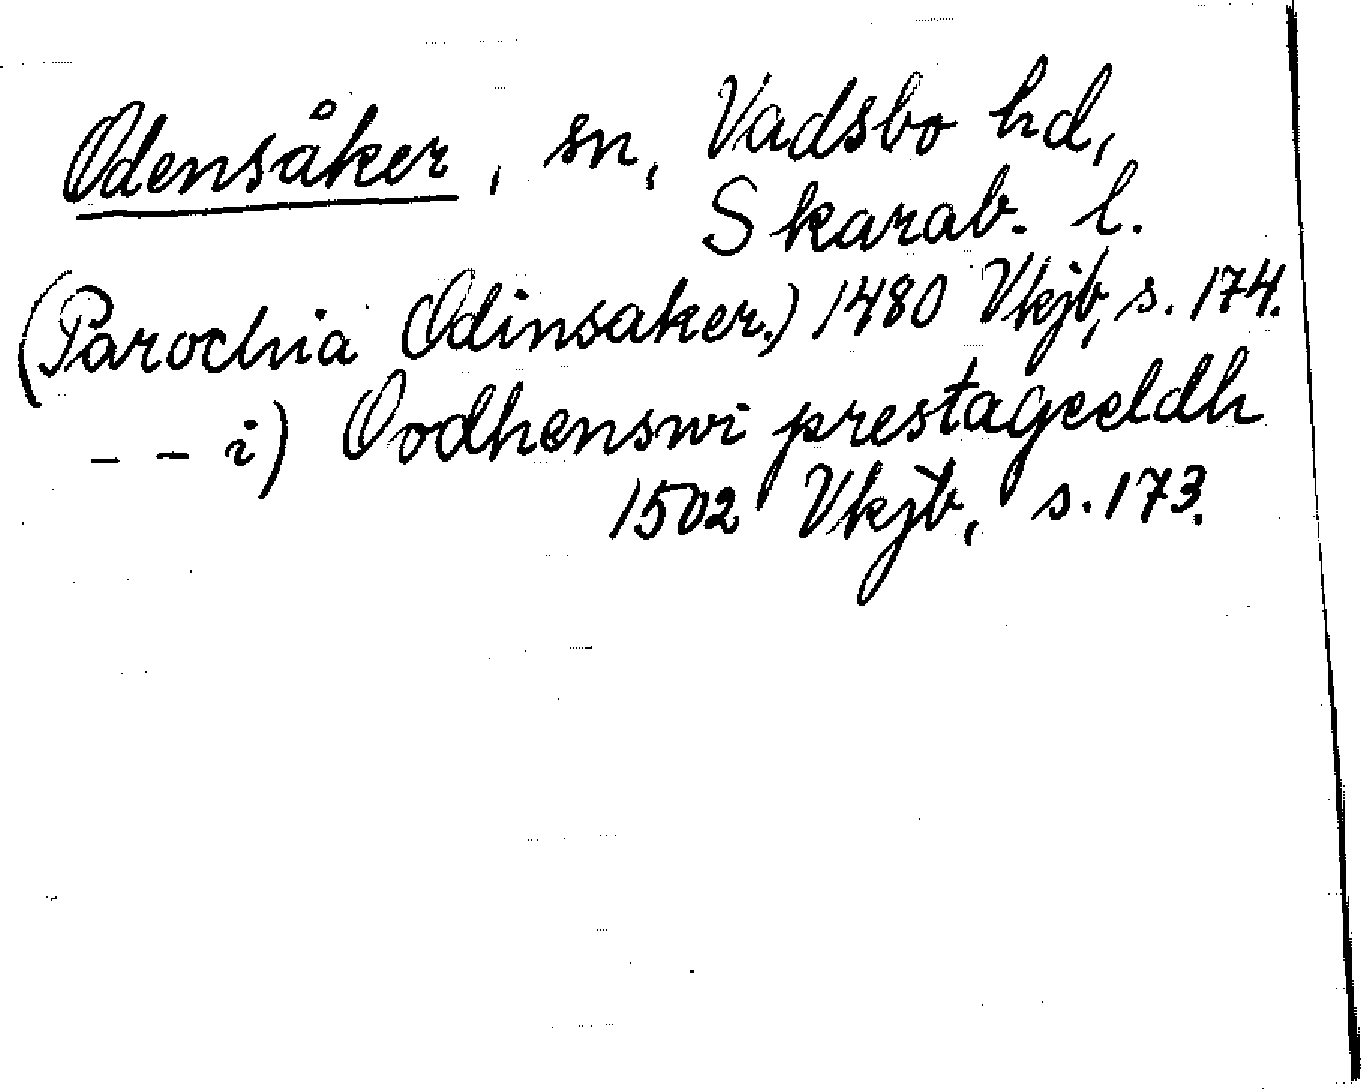 Odensåker, sn, Vadsbo hd,
Skarab. l.
(Parochia Odinsaker.) 1480 Vkjb, s. 174.
– – i) Oodhenswi prestageeldh
1502 Vkjb, s. 173.